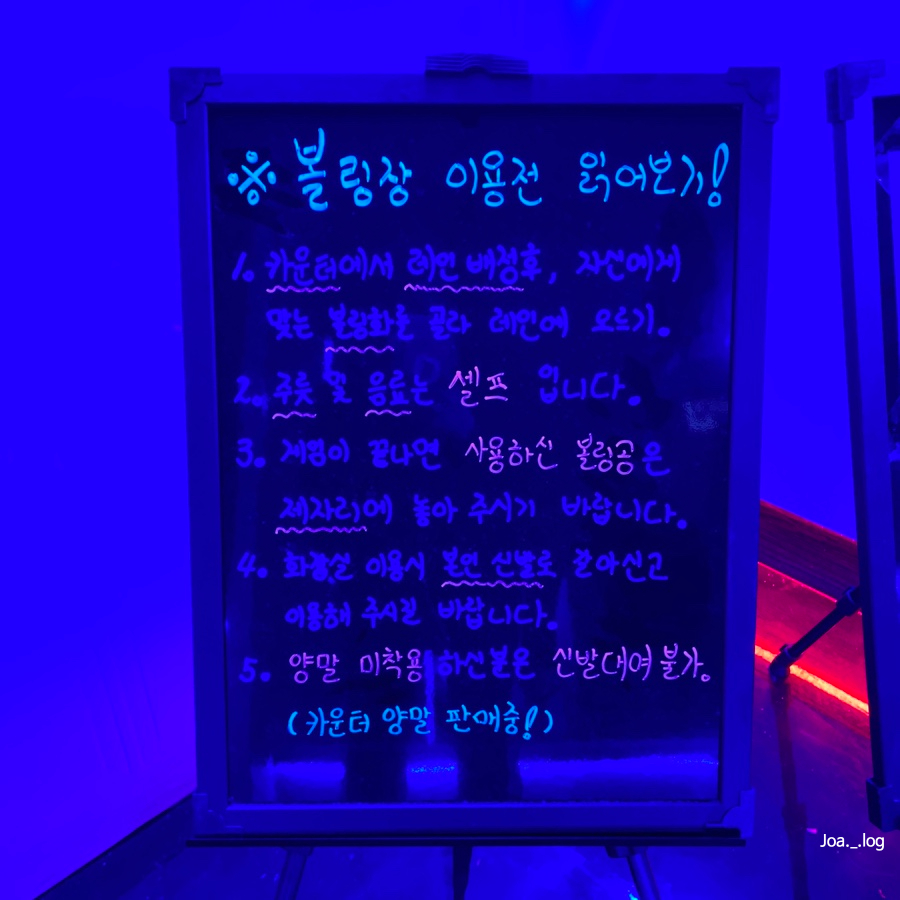 ※ 볼링장 이용전 읽어보기!
1. 카운터에서 레인 배정후, 자신에게
맞는 볼링화를 골라 레인에 오르기.
2. 주류 및 음료는 셀프 입니다.
3. 게임이 끝나면 사용하신 볼링공은
제자리에 놓아 주시기 바랍니다.
4. 화장실 이용시 본인 신발로 갈아신고
이용해 주시길 바랍니다.
5. 양말 미착용 하신분은 신발대여 불가.
(카운터 양말 판매중!)
Joa._.log